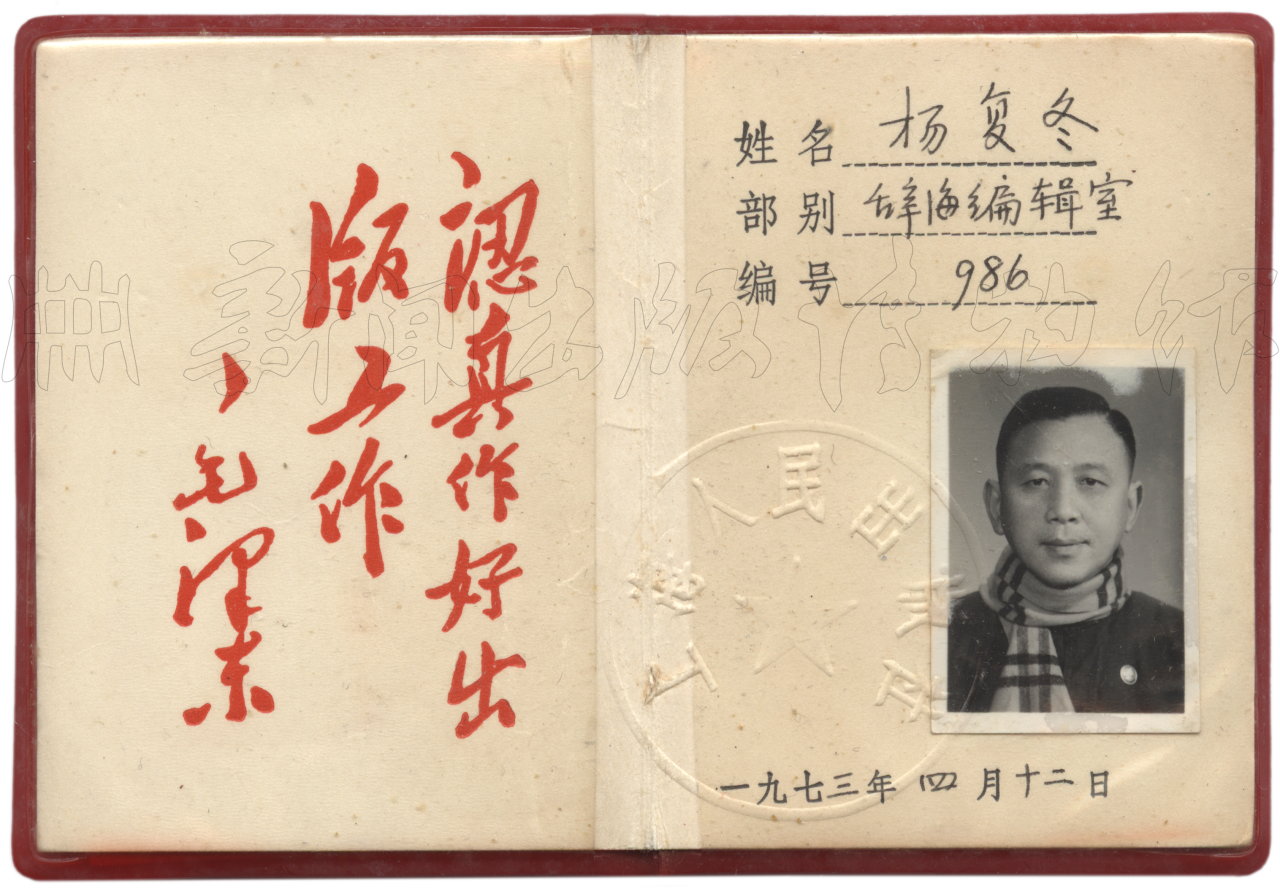 認真作好出
版工作
毛澤东
姓名 杨复冬
部别 辞海编辑室
编号 986
上海人民出版社
一九七三年四月十二日
新闻出版博物馆